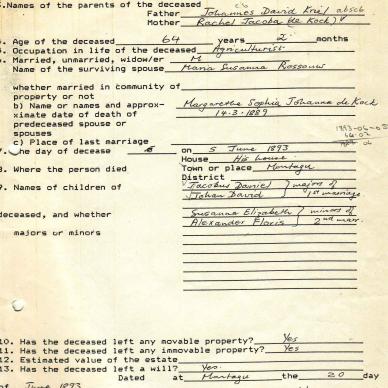 .Names of the parents of the deceased
Father Johannes David Kriel absob
Mother Rachel Jacoba de Kock)
. Age of the deceased 64 years 2 months
. Occupation in life of the deceased Agriculturist
. Married, unmarried, widow/er M
Name of the surviving spouse Maria Susanna Rossouw
whether married in community of
property or not
b) Name or names and approx- Margaretha Sophia Johanna de Kock
ximate date of death of 14.3.1889
predeceased spouse or
spouses
c) Place of last marriage
7. The day of decease on 5 June 1893
House His house
8. Where the person died Town or place Montagu
District
9. Names of children of Jacobus Daniel } majors of
Johan David } 1st marriage
deceased, and whether Susanna Elizabeth } minors of
Alexander Floris } 2nd marr.
majors or minors
10. Has the deceased left any movable property? Yes
11. Has the deceased left any immovable property? Yes
12. Estimated value of the estate
13. Has the deceased left a will? Yes.
Dated at Montagu the 20 day
of June 1893